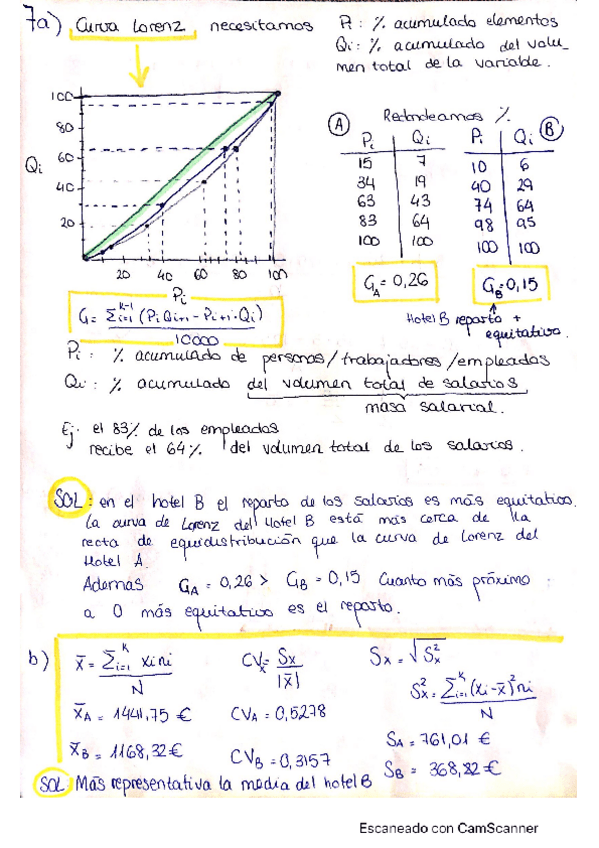 7a) Curva Lorenz necesitamos
Pi: % acumulado elementos
Qi: % acumulado del volu-
men total de la variable.
Qi
100
80
60
40
20
20 40 60 80 100
Pi
Redondeamos %
A
Pi Qi
15 7
34 19
63 43
83 64
100 100
GA = 0,26
B
Pi Qi
10 6
40 29
74 64
98 95
100 100
GB = 0,15
Hotel B reparto +
equitativo.
G = Σ i=1 k-1 (Pi Qi+1 - Pi+1 · Qi) / 10000
Pi: % acumulado de personas/trabajadores/empleados
Qi: % acumulado del volumen total de salarios
masa salarial.
Ej. el 83% de los empleados
recibe el 64% del volumen total de los salarios.
SOL: en el hotel B el reparto de los salarios es más equitativo.
La curva de Lorenz del Hotel B está más cerca de la
recta de equidistribución que la curva de Lorenz del
Hotel A.
Ademas GA = 0,26 > GB = 0,15 Cuanto más próximo
a 0 más equitativo es el reparto.
b) x̄ = Σ i=1 k xi ni / N CVx = Sx / |x̄| Sx = √S²x
S²x = Σ i=1 k (xi - x̄)² ni / N
x̄A = 1441,75 € CVA = 0,5278 SA = 761,01 €
x̄B = 1168,32 € CVB = 0,3157 SB = 368,82 €
SOL: Más representativa la media del hotel B
Escaneado con CamScanner